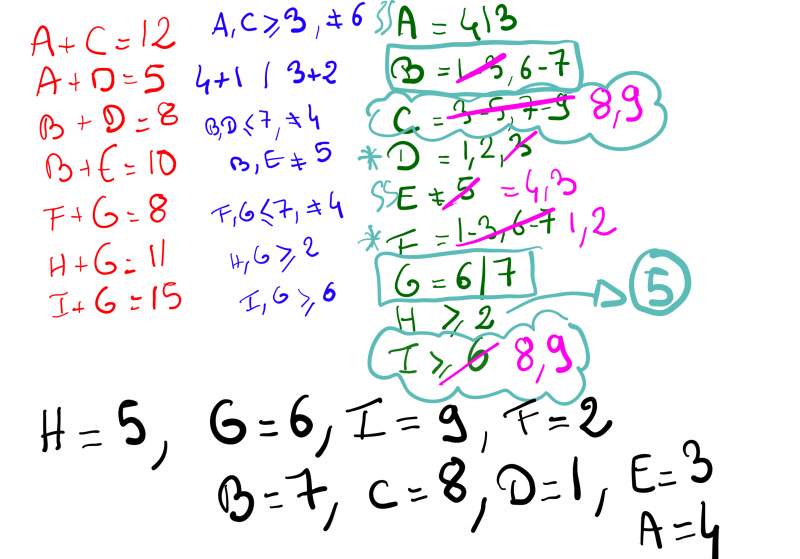 A+C=12
A+D=5
B+D=8
B+E=10
F+G=8
H+G=11
I+G=15
A,C ≥3, ≠6
4+1 | 3+2
B,D ≤7, ≠4
B,E ≠ 5
F,G ≤7, ≠4
H,G ≥ 2
I,G ≥ 6
SS A = 4|3
B = 1-3, 6-7
C = 3-5, 7-9 8,9
* D = 1,2,3
SS E ≠ 5 = 4,3
* F = 1-3, 6-7 1,2
G = 6|7
H ≥ 2 → 5
I ≥ 6 8,9
H = 5, G = 6, I = 9, F = 2
B = 7, C = 8, D = 1, E = 3
A = 4